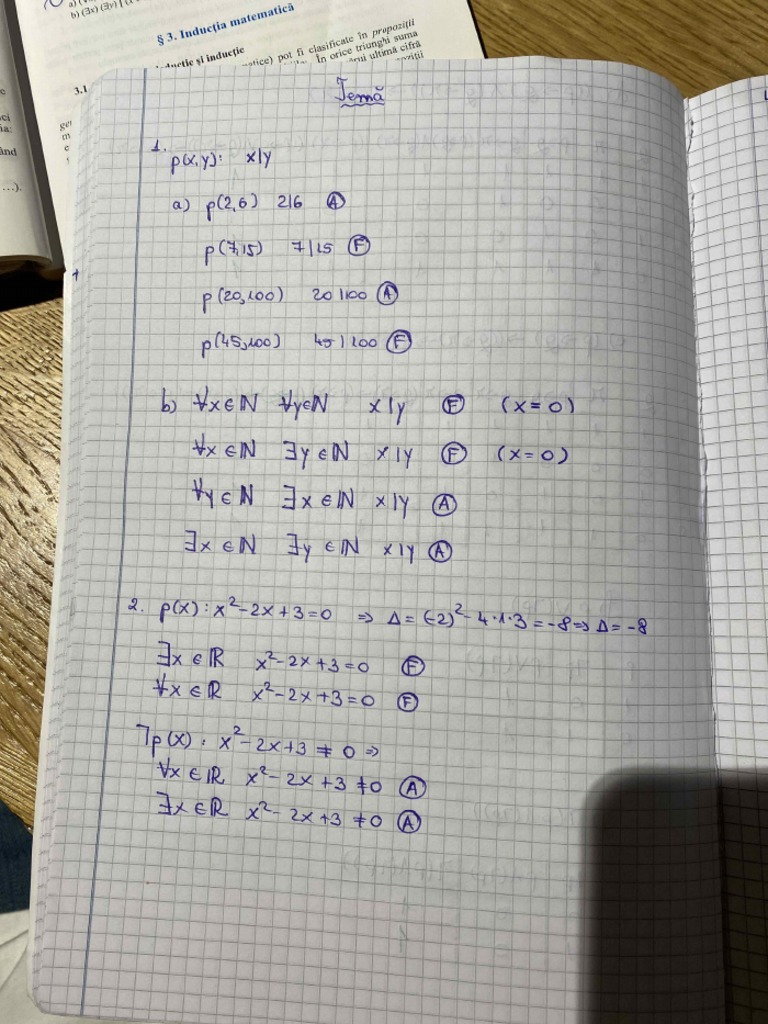 b) (∃x) (∀y)
§ 3. Inducția matematică
și inducție
pot fi clasificate în propoziții
În orice triunghi suma
ultima cifră
3.1
Temă
1.
p(x,y): x|y
a) p(2,6) 2|6 (A)
p(7,15) 7|15 (F)
p(20,100) 20|100 (A)
p(45,100) 45|100 (F)
b) ∀x∈ℕ ∀y∈ℕ x|y (F) (x=0)
∀x∈ℕ ∃y∈ℕ x|y (F) (x=0)
∀y∈ℕ ∃x∈ℕ x|y (A)
∃x∈ℕ ∃y∈ℕ x|y (A)
2. p(x): x²-2x+3=0 => Δ=(-2)²-4·1·3=-8=> Δ=-8
∃x∈ℝ x²-2x+3=0 (F)
∀x∈ℝ x²-2x+3=0 (F)
⌉p(x): x²-2x+3≠0 =>
∀x∈ℝ x²-2x+3≠0 (A)
∃x∈ℝ x²-2x+3≠0 (A)